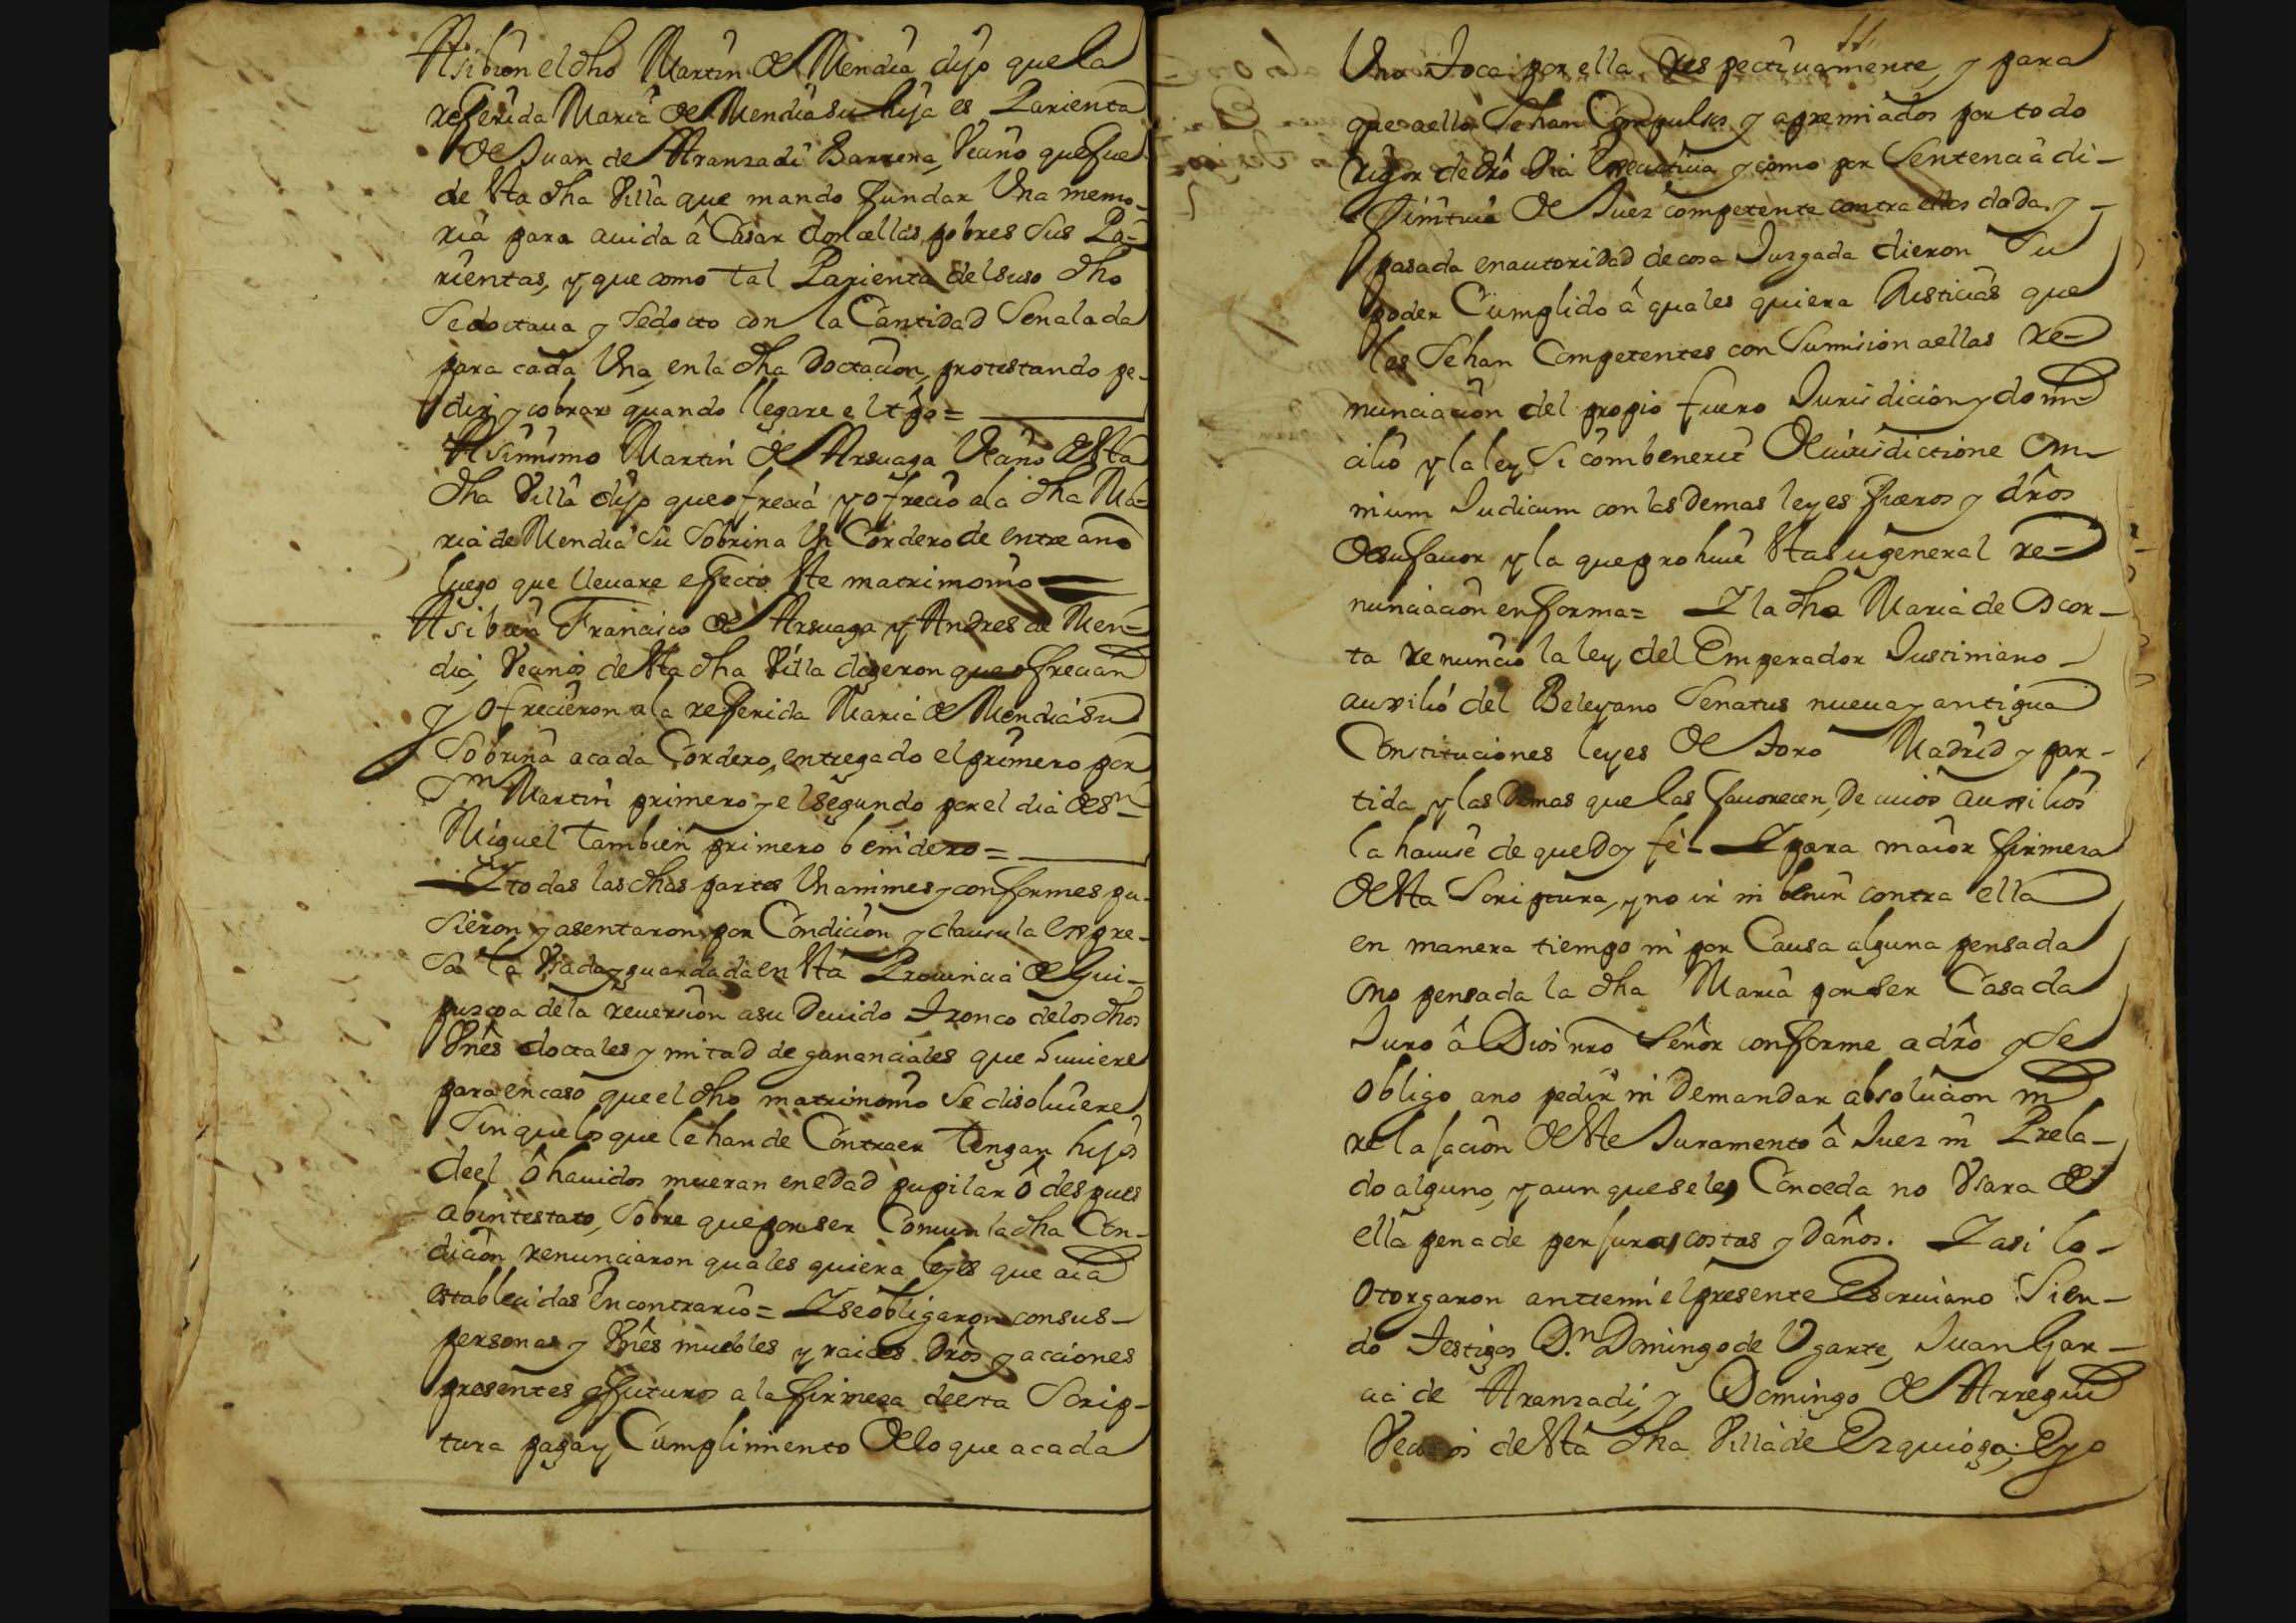 Asibien el dho Martin de Mendia dijo que la
referida Maria de Mendia su hija es Parienta
de Juan de Aransadi Barrena, Vecino que fue
de Sta dha Villa que mando fundar Una memo-
ria para auida â Casar doncellas pobres sus Pa-
rientas, y que como tal Parienta del suso dho
Se doctaua y Sedocto con la Cantidad Senalada
para cada Una, en la dha Doctacion, protestando pe-
dir y cobrar quando llegare el tpo =
Asimismo Martin de Arsuaga Vecino de Sta
dha Villa dijo que ofrecia y ofrecio a la dha Ma-
ria de Mendia su Sobrina Un Cordero de entre año
luego que lleuare efecto Ste matrimonio
Asibien Francisco de Arsuaga y Andres de Men-
dia, Vecinos de Sta dha Villa dijeron que ofrecian
y ofrecieron a la referida Maria de Mendia su
Sobrina a cada Cordero, entregado el primero por
Sn Martin primero y el Segundo por el dia de Sn
Miguel tambien primero benidero =
Y todas las dhas partes Unanimes y conformes pu-
sieron y asentaron por Condicion y clausula Expre-
sa la Vsada y guardada en Sta Prouincia de Gui-
puzcoa de la reuersion a su Deuido Tronco de los dhos
Vnes doctales y mitad de gananciales que huuiere
para en caso que el dho matrimonio Se disoluiere
Sin que los que le han de Contraer tengan hijos
de el ô hauidos mueran en edad pupilar ô despues
abintestato, Sobre que por ser Comun la dha Con-
dicion renunciaron quales quiera leyes que aia
establecidas En contrario = Y se obligaron con sus
personas y Vnes muebles y raices Dros y acciones
presentes y futuros a la firmeza de esta Scrip-
tura paga y Cumplimiento de lo que a cada
11
Uno Toca por ella respectiuamente, y para
que a ello Sehan Compulsos y apremiados por todo
rigor de Dro Via Executiua y como por Sentencia di-
finitiua de Juez competente contra ellos dada. y
pasada en autoridad de cosa Juzgada dieron Su
poder Cumplido â quales quiera Justicias que
les Sehan Competentes con Sumision a ellas re-
nunciacion del propio fuero Jurisdicion y domi-
cilio y la ley Si combenerit De iurisdictione Om-
nium Judicum con las Demas leyes fueros y dros
de su fauor y la que prohiue Sta su general re-
nunciacion en forma = Y la dha Maria de Oscor-
ta renuncio la ley del Emperador Justiniano
auxilio del Beleyano Senatus nueua y antigua
Constituciones leyes de Toro Madrid y par-
tida y las Demas que las fauorecen, De cuios auxilios
la hauise de que Doy fê - Y para maior firmeza
de Sta Scriptura, y no ir ni benir contra ella
en manera tiempo ni por Causa alguna pensada
Ono pensada la dha Maria por Ser Casada
Juro â Dios nro Señor conforme a dro y se
obligo ano pedir ni Demandar absolucion ni
relajacion de Ste Juramento â Juez ni Prela-
do alguno, y aunque se les Conceda no Vsara de
ella pena de perjuras costas y Daños. Y asi lo
otorgaron ante mi el presente Escriuano Sien-
do Testigos Dn. Domingo de Ugarte, Juan Gar-
cia de Aransadi, y Domingo de Arregui
Vecinos de Sta dha Villa de Ezquioga; E yo